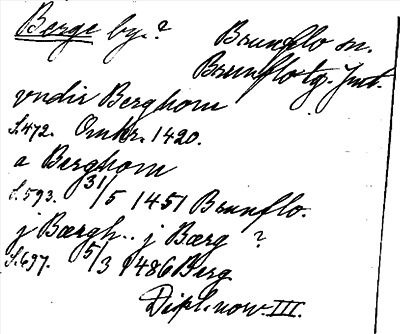 Berge by.? Brunflo sn.
Brunflo tg. Jmt.
vndir Berghom
S.472. Omkr. 1420.
a Berghom
S.593. 31/5 1451 Brunflo.
j Bærgh.. j Bærg ?
S.697. 5/3 1486 Berg
Dipl. norv. III.